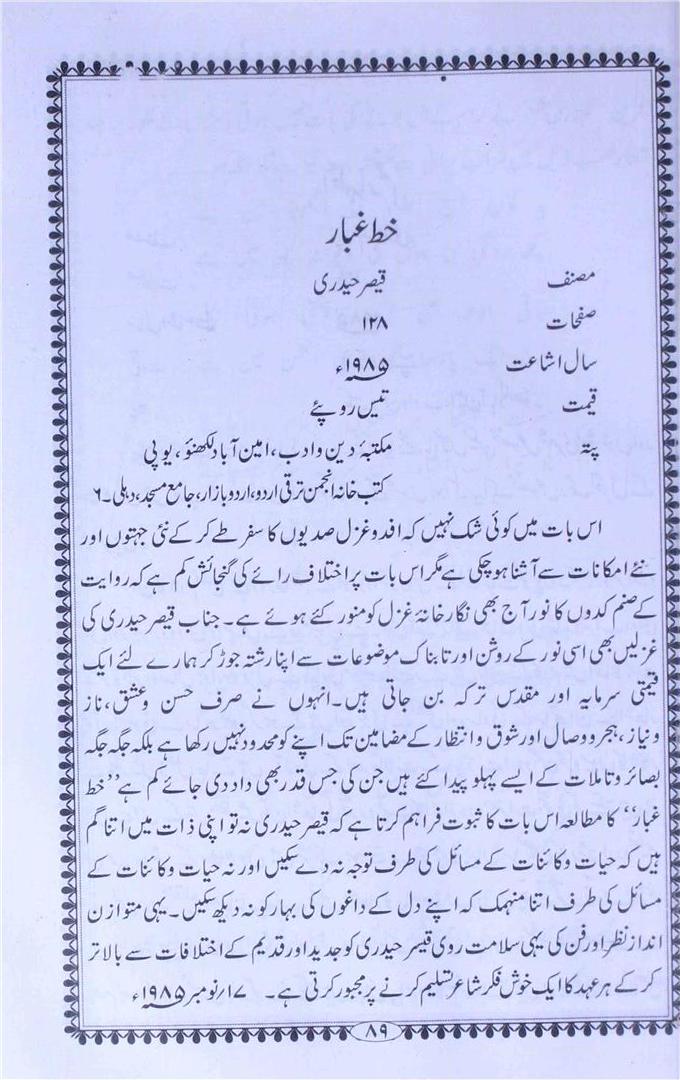 خط غبار
مصنف قیصر حیدری
صفحات ۱۲۸
سال اشاعت ۱۹۸۵ء
قیمت تیس روپئے
پتہ مکتبۂ دین و ادب، امین آباد لکھنؤ، یوپی
کتب خانہ انجمن ترقی اردو، اردو بازار، جامع مسجد، دہلی۔۶
اس بات میں کوئی شک نہیں کہ افدو غزل صدیوں کا سفر طے کر کے نئی جہتوں اور
نئے امکانات سے آشنا ہو چکی ہے مگر اس بات پر اختلاف رائے کی گنجائش کم ہے کہ روایت
کے صنم کدوں کا نور آج بھی نگار خانۂ غزل کو منور کئے ہوئے ہے۔ جناب قیصر حیدری کی
غزلیں بھی اسی نور کے روشن اور تابناک موضوعات سے اپنا رشتہ جوڑ کر ہمارے لئے ایک
قیمتی سرمایہ اور مقدس ترکہ بن جاتی ہیں۔ انہوں نے صرف حسن و عشق، ناز
و نیاز، ہجر و وصال اور شوق و انتظار کے مضامین تک اپنے کو محدود نہیں رکھا ہے بلکہ جگہ جگہ
بصائر و تاملات کے ایسے پہلو پیدا کئے ہیں جن کی جس قدر بھی داد دی جائے کم ہے ’’خط
غبار‘‘ کا مطالعہ اس بات کا ثبوت فراہم کرتا ہے کہ قیصر حیدری نہ تو اپنی ذات میں اتنا گم
ہیں کہ حیات و کائنات کے مسائل کی طرف توجہ نہ دے سکیں اور نہ حیات و کائنات کے
مسائل کی طرف اتنا منہمک کہ اپنے دل کے داغوں کی بہار کو نہ دیکھ سکیں۔ یہی متوازن
انداز نظر اور فن کی یہی سلامت روی قیسر حیدری کو جدید اور قدیم کے اختلافات سے بالاتر
کر کے ہر عہد کا ایک خوش فکر شاعر تسلیم کرنے پر مجبور کرتی ہے۔ ۱۷/نومبر ۱۹۸۵ء
۸۹